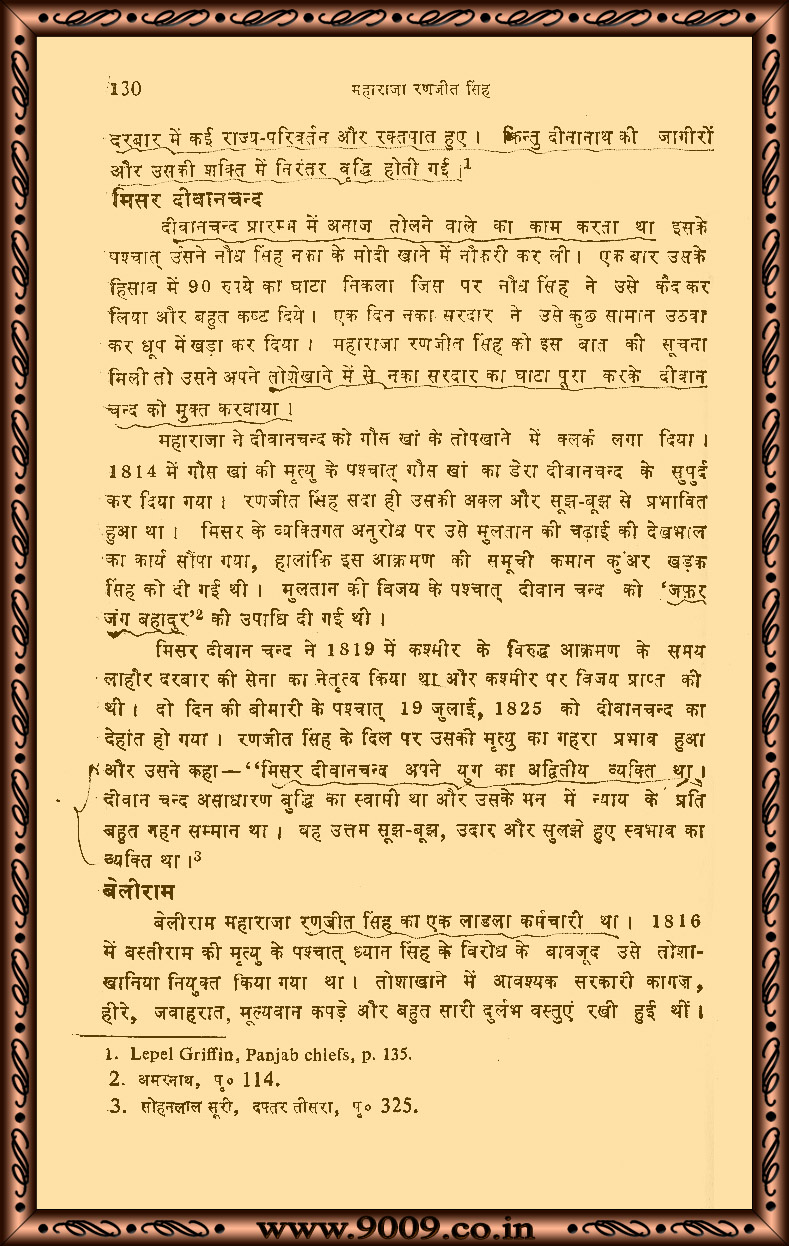 130 महाराजा रणजीत सिंह
दरबार में कई राज्य-परिवर्तन और रक्तपात हुए । किन्तु दीनानाथ की जागीरों
और उसकी शक्ति में निरंतर वृद्धि होती गई ।1
मिसर दीवानचन्द
दीवानचन्द प्रारम्भ में अनाज तोलने वाले का काम करता था इसके
पश्चात् उसने नौध सिंह नका के मोदी खाने में नौकरी कर ली । एक बार उसके
हिसाब में 90 रुपये का घाटा निकला जिस पर नौध सिंह ने उसे कैद कर
लिया और बहुत कष्ट दिये । एक दिन नका सरदार ने उसे कुछ सामान उठवा
कर धूप में खड़ा कर दिया । महाराजा रणजीत सिंह को इस बात की सूचना
मिली तो उसने अपने तोशेखाने में से नका सरदार का घाटा पूरा करके दीवान
चन्द को मुक्त करवाया ।
महाराजा ने दीवानचन्द को गौस खां के तोपखाने में क्लर्क लगा दिया ।
1814 में गौस खां की मृत्यु के पश्चात् गौस खां का डेरा दीवानचन्द के सुपुर्द
कर दिया गया । रणजीत सिंह सदा ही उसकी अक्ल और सूझ-बूझ से प्रभावित
हुआ था । मिसर के व्यक्तिगत अनुरोध पर उसे मुलतान की चढ़ाई की देखभाल
का कार्य सौंपा गया, हालांकि इस आक्रमण की समूची कमान कुंअर खड़क
सिंह को दी गई थी । मुलतान की विजय के पश्चात् दीवान चन्द को ‘जफ़र
जंग बहादुर’2 की उपाधि दी गई थी ।
मिसर दीवान चन्द ने 1819 में कश्मीर के विरुद्ध आक्रमण के समय
लाहौर दरबार की सेना का नेतृत्व किया था और कश्मीर पर विजय प्राप्त की
थी । दो दिन की बीमारी के पश्चात् 19 जुलाई, 1825 को दीवानचन्द का
देहांत हो गया । रणजीत सिंह के दिल पर उसकी मृत्यु का गहरा प्रभाव हुआ
और उसने कहा—“मिसर दीवानचन्द अपने युग का अद्वितीय व्यक्ति था ।
दीवान चन्द असाधारण बुद्धि का स्वामी था और उसके मन में न्याय के प्रति
बहुत गहन सम्मान था । वह उत्तम सूझ-बूझ, उदार और सुलझे हुए स्वभाव का
व्यक्ति था ।3
बेलीराम
बेलीराम महाराजा रणजीत सिंह का एक लाडला कर्मचारी था । 1816
में बस्तीराम की मृत्यु के पश्चात् ध्यान सिंह के विरोध के बावजूद उसे तोशा-
खानिया नियुक्त किया गया था । तोशाखाने में आवश्यक सरकारी कागज,
हीरे, जवाहरात, मूल्यवान कपड़े और बहुत सारी दुर्लभ वस्तुएं रखी हुई थीं ।
1. Lepel Griffin, Panjab chiefs, p. 135.
2. अमरनाथ, पृ० 114.
3. सोहनलाल सूरी, दफ्तर तीसरा, पृ० 325.
www.9009.co.in